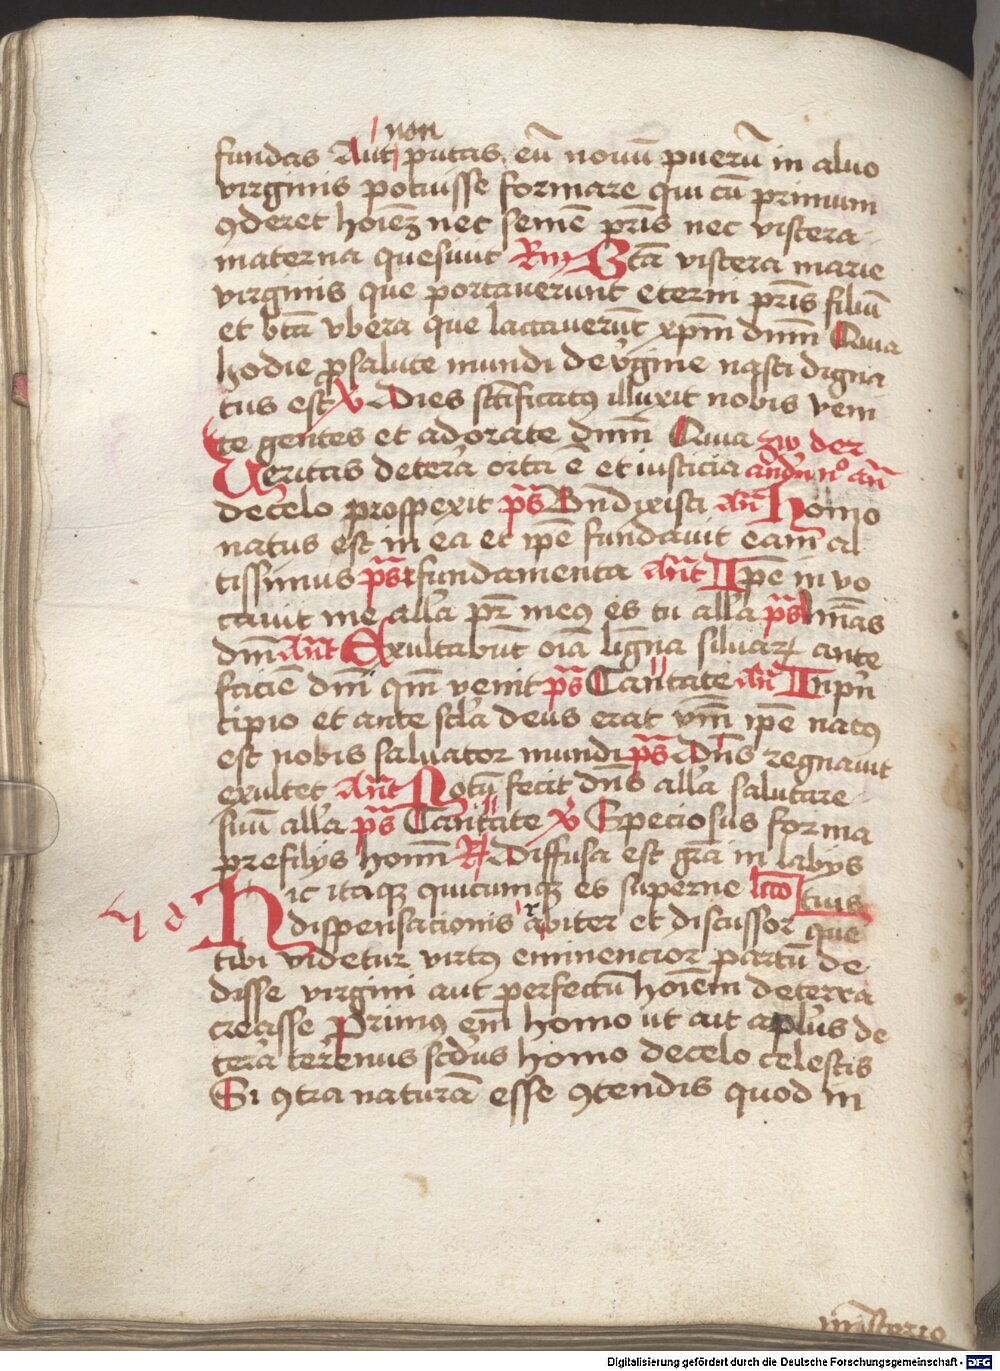 non
fundas Aut putas eū nouū puerū in aluo
virginis potuisse formare qui cū primum
ꝯderet hoiēʒ nec semē pr̄is nec viscera
materna quesiuit Rm Btā viscera marie
virginis que portauerunt eterni pr̄is filiū
et btā vbera que lactauerūt xp̄m dn̄m Quia
hodie ꝓ salute mundi de v̓gine nasci digna
tus est V Dies sc̄ificatꝰ illuxit nobis veni
te gentes et adorate dn̄m Quia zw der
Veritas de tera orta ē et iusticia andn nᵒ an̄
de celo prospexit ps̄ Bn̄dixisti an̄ Homo
natus est in ea et ip̄e fundauit eam al
tissimus ps̄ fundamenta Ant̄ Ip̄e in vo
cauit me all̓a pr̄ meꝰ es tu all̓a ps̄ Mīas
dn̄i Ant̄ Exultabūt oīa ligna siluaꝝ ante
faciē dn̄i qm̄ venit ps̄ Cantate an̄ In pn̄
cipio et ante scl̓a deus erat v̄m ip̄e natꝰ
est nobis saluator mundi ps̄ Dn̄s regnauit
exultet Ant̄ Notū fecit dn̄s all̓a salutare
suū all̓a ps̄ Cantate V Speciosus forma
pre filijs hom̄ R Diffusa est gr̄a in labijs
Hic itaqʒ quicumqʒ es superne lcc̄o tuis
dispensacionis arbiter et discussor que
tibi videtur virtꝰ eminencior partū de
disse virgini aut perfectū hoiēm de terra
creasse Primꝰ em̄ homo ut ait apl̓us de
tera terrenus scd̓us homo de celo celestis
Si ꝯtra naturā esse ꝯtendis quod in
Digitalisierung gefördert durch die Deutsche Forschungsgemeinschaft - DFG